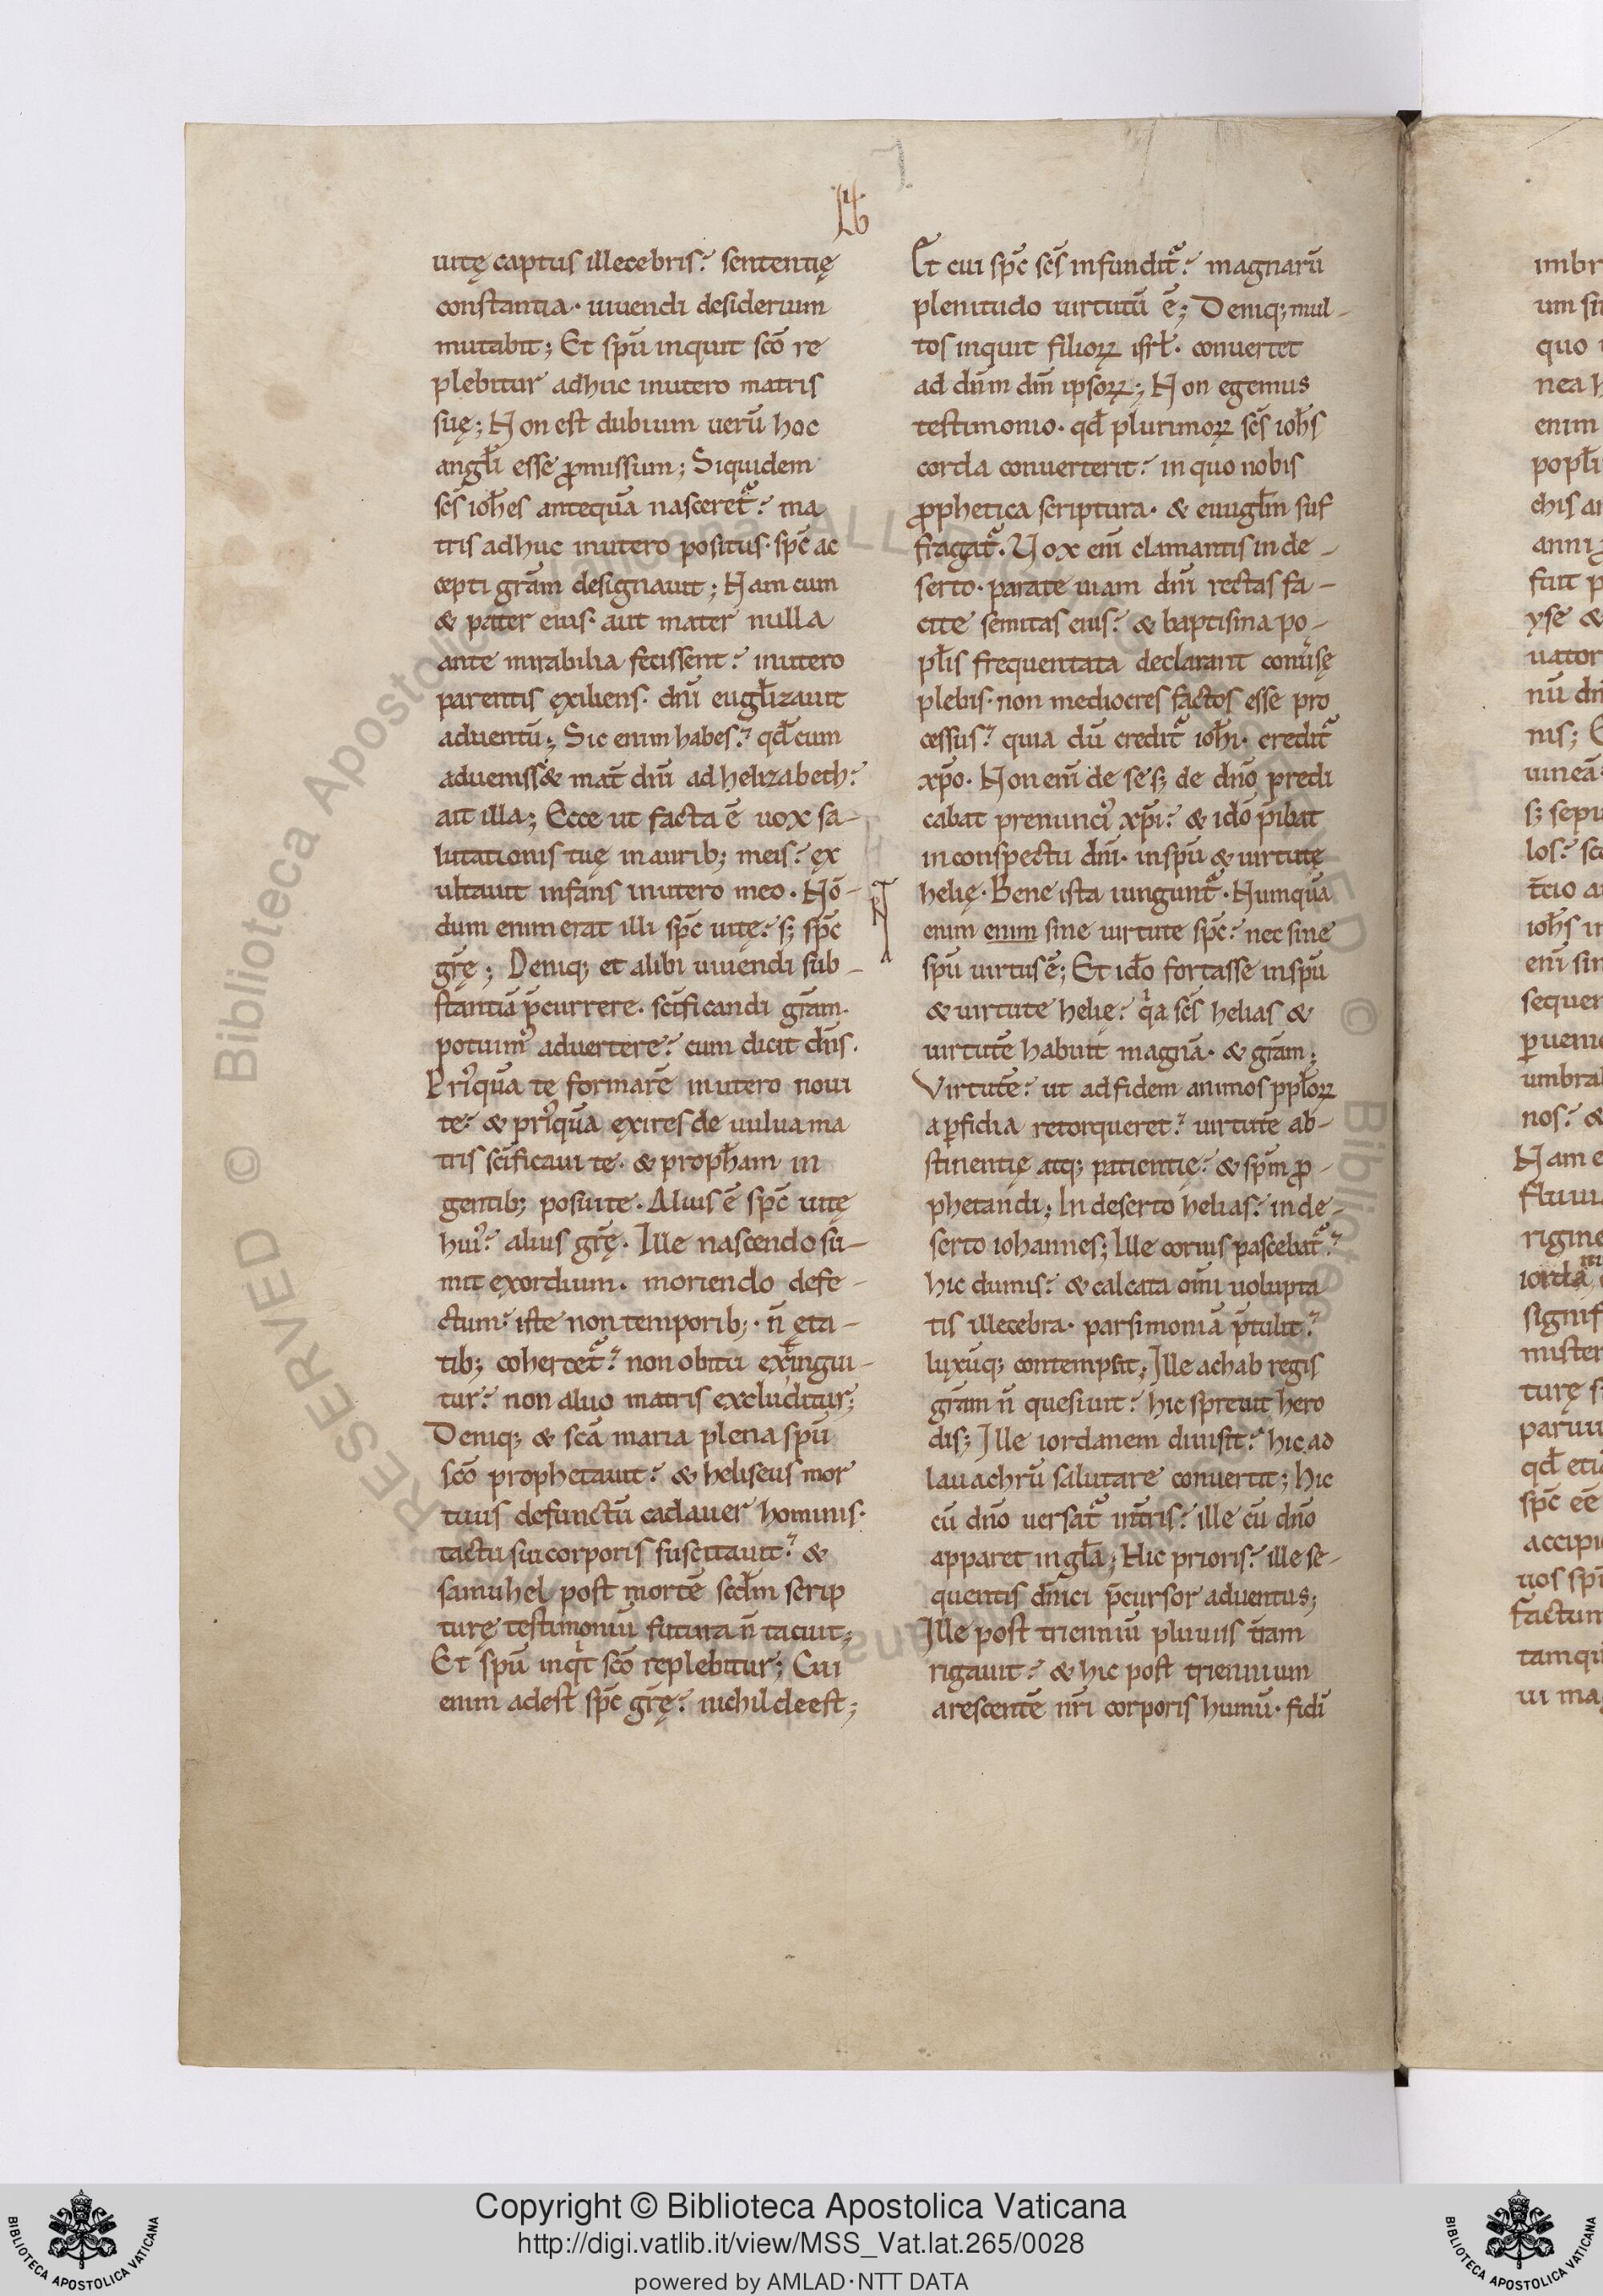 I.
Lb
uitę captus illecebris? sententię
constantia· uiuendi desiderium
mutabit; Et spū inquit scō re
plebitur adhuc inutero matris
suę; Non est dubium uerū hoc
angłi esse ꝓmissum; Siquidem
scs̄ ioħes antequā nasceret᷑? ma
tris adhuc inutero positus· spc̄ ac
cepti grām designauit; Nam cum
& pater eius· aut mater nulla
ante mirabilia fecissent? inutero
parentis exiliens· dnī eugłizauit
aduentū; Sic enim habes? qđ cum
adueniss& mat̄ dnī ad helizabeth?
ait illa; Ecce ut facta ē uox sa-
lutationis tuę in aurib; meis? ex
ultauit infans inutero meo· Nō-
dum enim erat illi spc̄ uitę? s; spc̄
grę̄; Deniq; et alibi uiuendi sub-
stantiā p̄currere· scīficandi grām·
potuimꝰ aduertere? cum dicit dns̄·
Priꝰquā te formarē inutero noui
te? & priꝰquā exires de uulua ma
tris scīficaui te· & propħam in
gentib; posui te· Alius ē spc̄ uitę
huiꝰ? alius grę̄· Ille nascendo sū-
mit exordium· moriendo defe-
ctum? iste non temporib;· n̄ ęta-
tib; cohercet᷑? non obitu extingui-
tur? non aluo matris excluditur;
Deniq; & scā maria plena spū
scō prophetauit? & heliseus mor
tuus defunctū cadauer hominis·
tactu sui corporis suscitauit? &
samuhel post mortē scđm scrip
turę testimoniū futura n̄ tacuit;
Et spū inqͥt scō replebitur; Cui
enim adest spc̄ grę̄? nichil deest;
Et cui spc̄ scs̄ infundit᷑? magnarū
plenitudo uirtutū ē; Deniq; mul-
tos inquit filioꝝ isrł· conuertet
ad dn̄m dm̄ ipsoꝝ; Non egemus
testimonio· qđ plurimoꝝ scs̄ ioħs
corda conuerterit? in quo nobis
ꝓphetica scriptura· & euugłm suf
fragat᷑· Uox enī clamantis in de-
serto· parate uiam dnī rectas fa-
cite semitas eius? & baptisma po-
płis frequentata declarant conūsę
plebis· non mediocres factos esse pro
cessus? quia dū credit᷑ ioħi· credit᷑
xp̄o· Non enī de se s; de dnō predi
cabat prenunciꝰ xp̄i? & idō p̄ibat
in conspectu dnī· in spū & uirtute
helię· Bene ista iungunt᷑· Numquā
enim enim sine uirtute spc̄? nec sine
spū uirtus ē; Et iđo fortasse in spū
& uirtute helię? qͥa scs̄ helias &
uirtutē habuit magnā· & grām;
Virtutē? ut ad fidem animos ppłoꝝ
a ꝑfidia retorqueret? uirtutē ab-
stinentię atq; patientię? & spm̄ ꝓ-
phetandi; In deserto helias? in de-
serto iohannes; Ille coruis pascebat᷑?
hic dumis? & calcata omī uolupta
tis illecebra· parsimoniā p̄tulit?
luxūq; contempsit; Ille achab regis
grām n̄ quesiuit? hic spreuit hero
dis; Ille iordanem diuisit? hic ad
lauachrū salutare conuertit; Hic
cū dnō uersat᷑ in t̄ris? ille cū dnō
apparet in głā; Hic prioris? ille se-
quentis dn̄ici p̄cursor aduentus;
Ille post trienniū pluuiis t̄ram
rigauit? & hic post triennium
arescentē nrī corporis humū· fidī